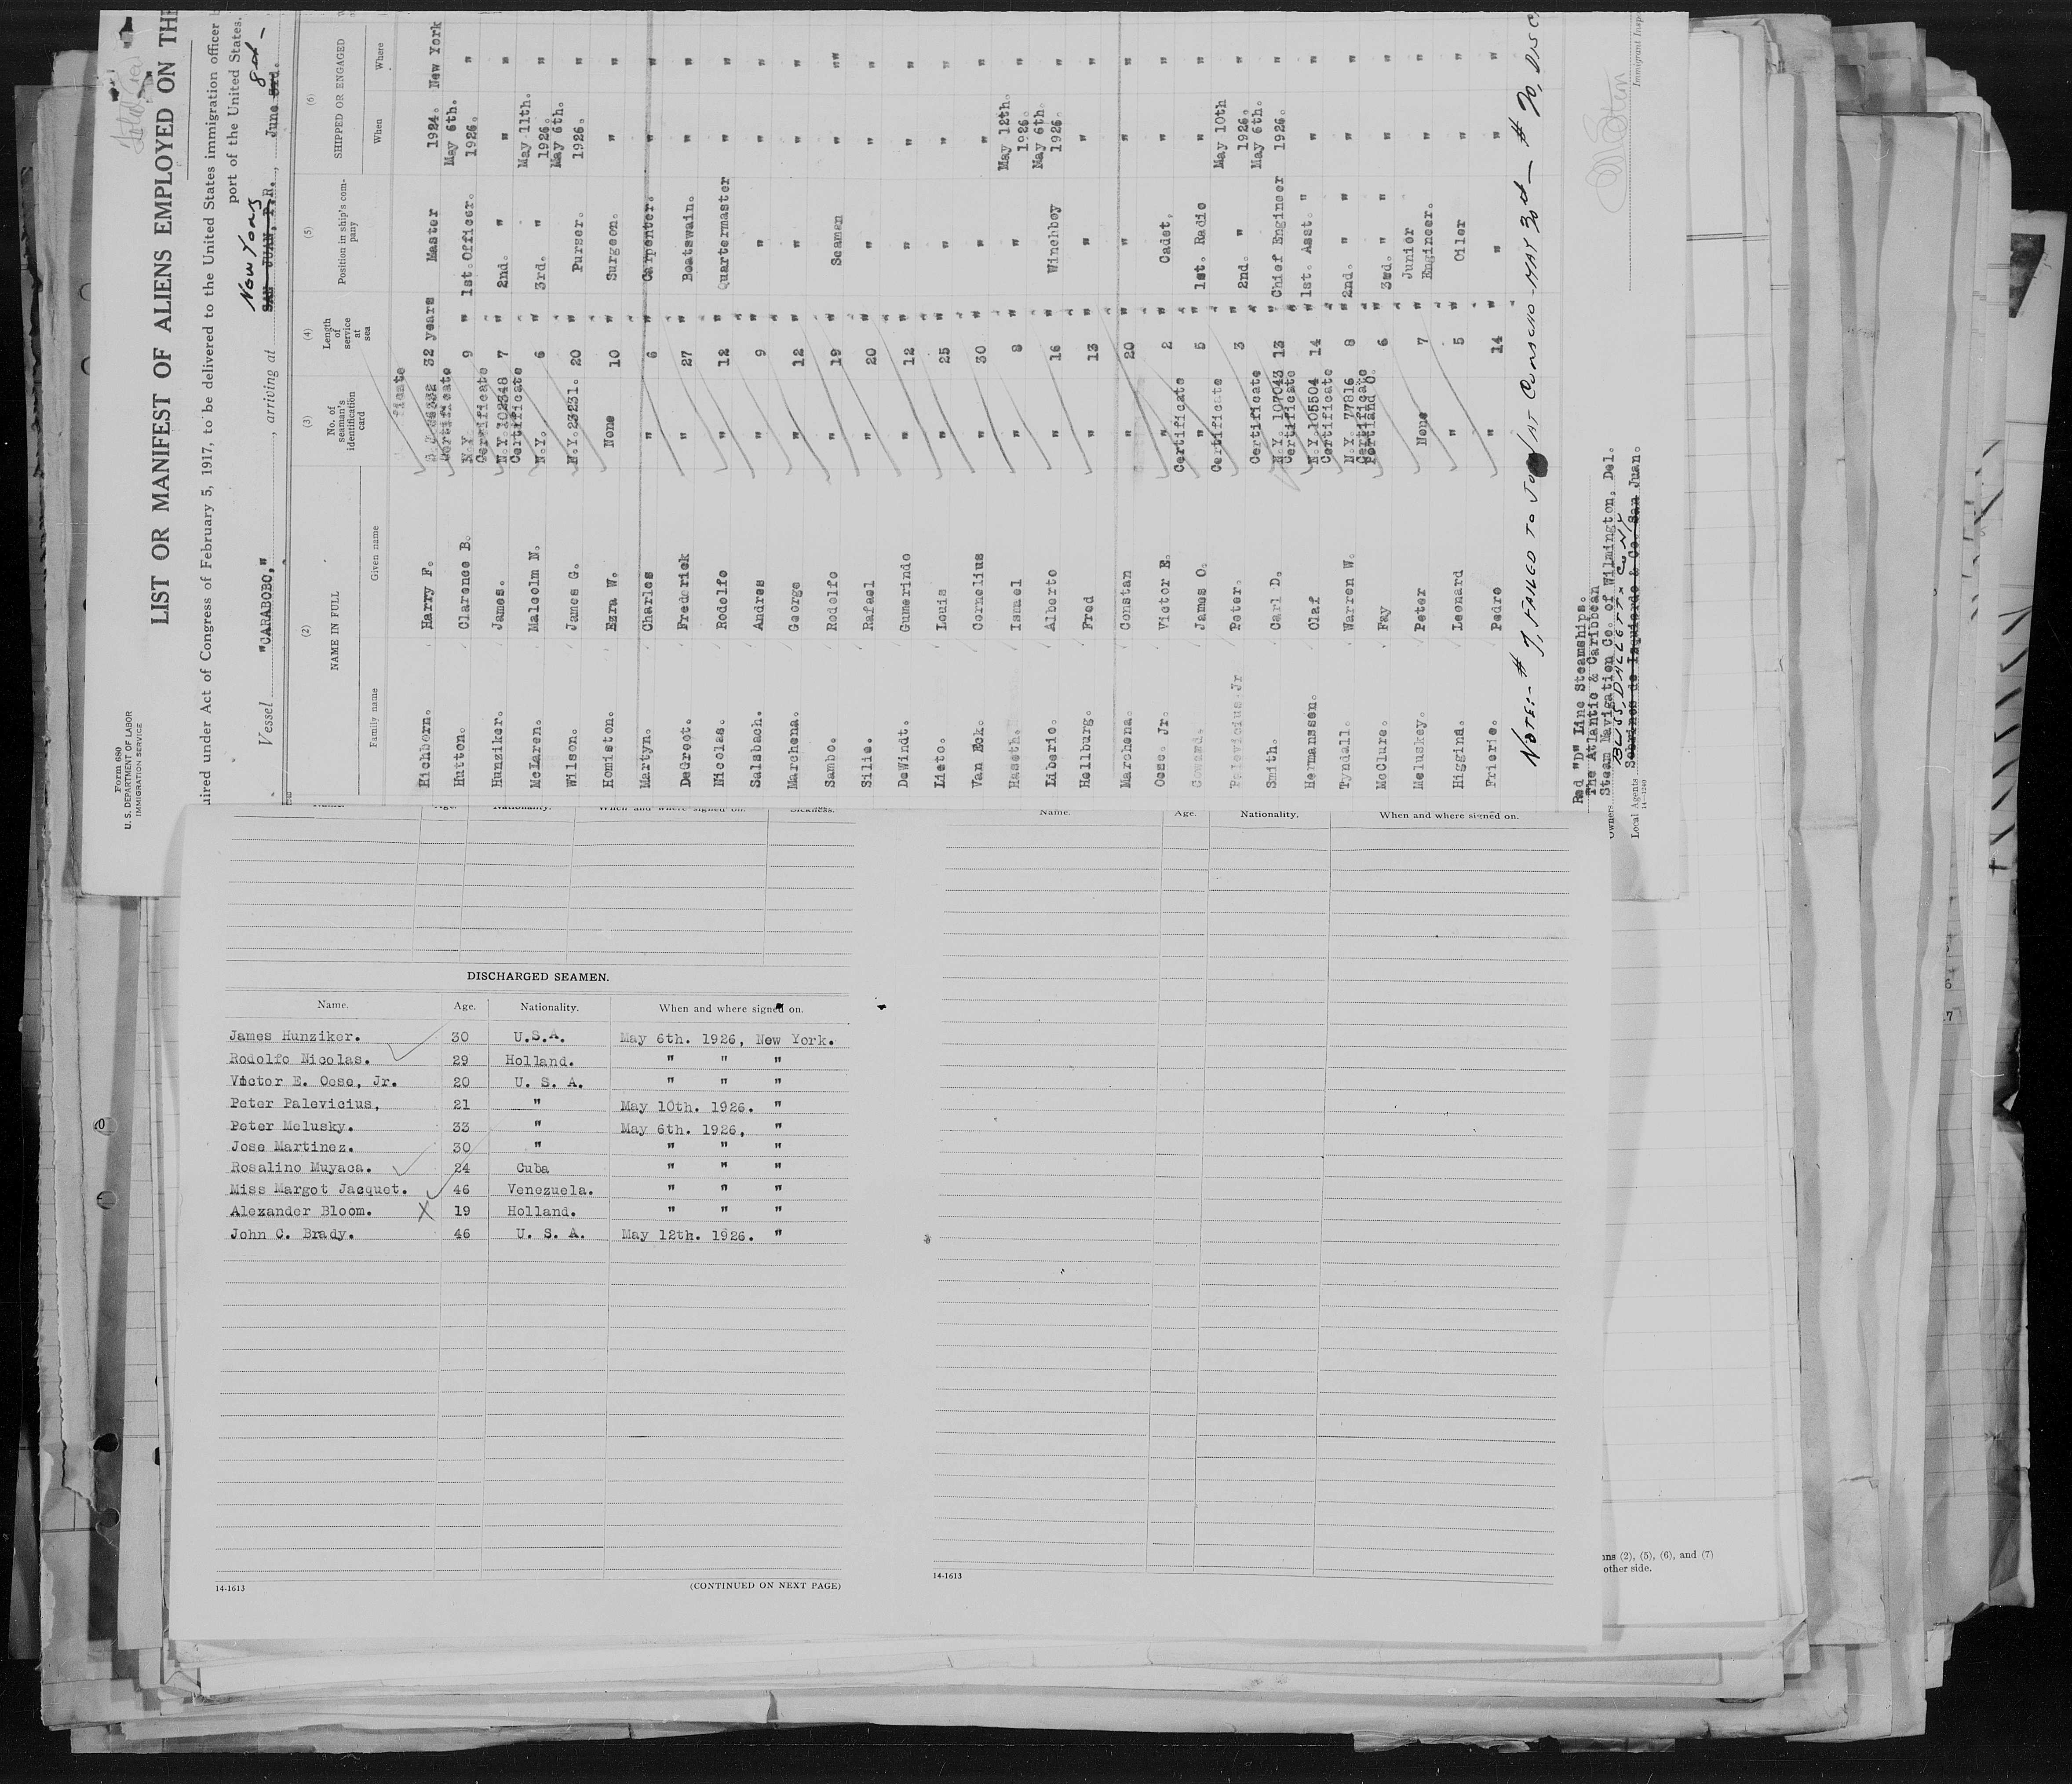 Form 680
U. S. DEPARTMENT OF LABOR
IMMIGRATION SERVICE
LIST OR MANIFEST OF ALIENS EMPLOYED ON TH
uired under Act of Congress of February 5, 1917, to be delivered to the United States immigration officer
port of the United States.
New York 8th
Vessel "CARABOBO," , arriving at SAN JUAN, P.R. , June 3rd.
(2) (3) (4) (5) (6)
NAME IN FULL No. of seaman's identification card Length of service at sea Position in ship's company SHIPPED OR ENGAGED
Family name Given name When Where
ficate
Hichborn. Harry F. 32 years Master 1924. New York
Certificate May 6th.
Hutton. Clarence B. N.Y. 9 " 1st.Officer. 1926. "
Certificate
Hunziker. James. N.Y.102348 7 " 2nd. " " "
Certificate May 11th.
McLaren. Malcolm N. N.Y. 6 " 3rd. " 1926. "
May 6th.
Wilson. James G. N.Y.23231. 20 " Purser. 1926. "
Homiston. Ezra W. None 10 " Surgeon. " "
Martyn. Charles " 6 " Carpenter. " "
DeGroot. Frederick " 27 " Boatswain. " "
Nicolas. Rodolfo " 12 " Quartermaster " "
Salsbach. Andres " 9 " " " "
Marchena. George " 12 " " " "
Sambo. Rodolfo " 19 " Seaman " ""
Silie. Rafael " 20 " " " "
DeWindt. Gumerindo " 12 " " " "
Lieto. Louis " 25 " " " "
Van Eck. Cornelius " 30 " " " "
May 12th.
Haseth. Ismael " 8 " " 1926. "
May 6th.
Liberio. Alberto " 16 " Winchboy 1926. "
Hellburg. Fred " 13 " " " "
Marchena. Constan " 20 " " " "
Ocse. Jr. Victor E. " 2 " Cadet, " "
Certificate
Coward. James O. " 5 " 1st. Radio " "
Certificate May 10th
Palevicius.Jr Peter. 3 " 2nd. " 1926. "
Certificate May 6th.
Smith. Carl D. N.Y.107043 13 " Chief Engineer 1926. "
Certificate
Hermanssen. Olaf N.Y.105504 14 " 1st. Asst. " " "
Certificate
Tyndall. Warren W. N.Y. 77816 8 " 2nd. " " " "
Certificate
McClure. Fay Portland O. 6 " 3rd. " " " "
Meluskey. Peter None 7 " Junior Engineer. " "
Higgins. Leonard " 5 " Oiler " "
Pricrie. Pedro " 14 " " " "
NOTE:- # 7, FAILED TO JOIN AT CURACAO - MAY 30th — # 20, DISC
Red "D" Line Steamships.
The Atlantic & Caribbean
Owners Steam Navigation Co. of Wilmington, Del.
BLISS DALLETT & Co NY
Local Agents Sobrinos de Izquierdo & Co. San Juan.
14—1240
Immigrant Inspe
Name. Age. Nationality. When and where signed on. Sickness.
Name. Age. Nationality. When and where signed on.
DISCHARGED SEAMEN.
Name. Age. Nationality. When and where signed on.
James Hunziker. 30 U.S.A. May 6th. 1926, New York.
Rodolfo Nicolas. 29 Holland. " " "
Victor E. Ocse, Jr. 20 U. S. A. " " "
Peter Palevicius, 21 " May 10th. 1926. "
Peter Melusky. 33 " May 6th. 1926, "
Jose Martinez. 30 " " " "
Rosalino Muyaca. 24 Cuba " " "
Miss Margot Jacquet. 46 Venezuela. " " "
Alexander Bloom. X 19 Holland. " " "
John C. Brady. 46 U. S. A. May 12th. 1926. "
14-1613 (CONTINUED ON NEXT PAGE)
14-1613
ns (2), (5), (6), and (7)
other side.